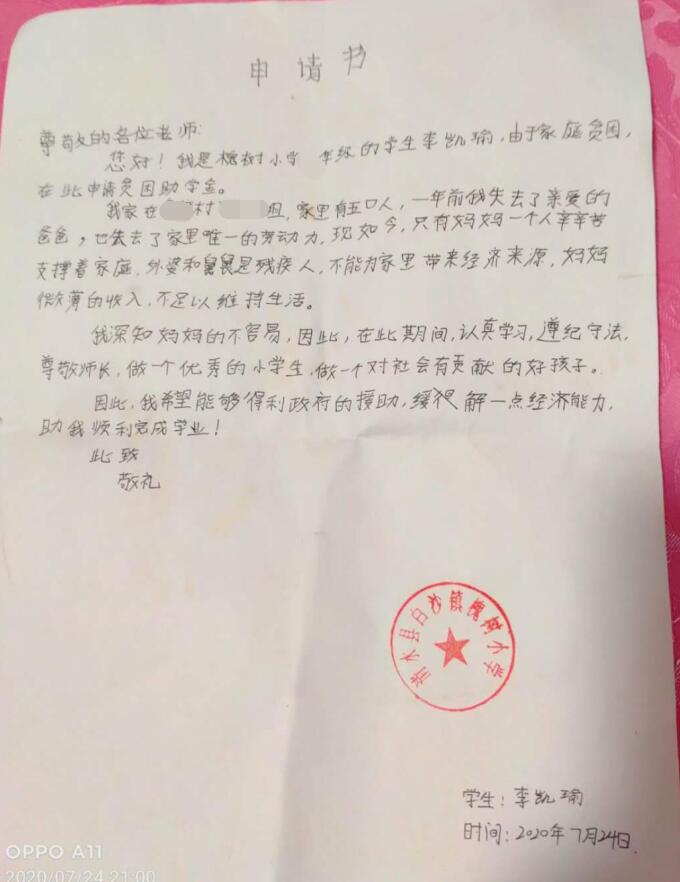 申请书
尊敬的各位老师:
您好！我是槐树小学 年级的学生李凯瑜，由于家庭贫困，
在此申请贫困助学金。
我家在 村 组，家里有五口人，一年前我失去了亲爱的
爸爸，也失去了家里唯一的劳动力，现如今，只有妈妈一个人辛辛苦
支撑着家庭，外婆和舅舅是残疾人，不能为家里带来经济来源，妈妈
微薄的收入，不足以维持生活。
我深知妈妈的不容易，因此，在此期间，认真学习，遵纪守法，
尊敬师长，做一个优秀的小学生，做一个对社会有贡献的好孩子。
因此，我希望能够得利政府的援助，缓 解一点经济能力，
助我顺利完成学业！
此致
敬礼
水县白沙镇槐树小学
学生：李凯瑜
时间：2020年7月24日.
OPPO A11
2020/07/24 21:00